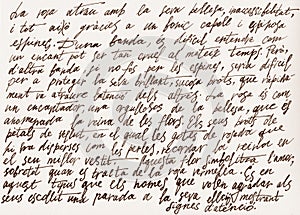 La rosa atrau amb la seva bellesa, inaccessibilitat,
i tot això gràcies a un bonic capoll i espines
espines. D'una banda, és difícil entendre com
un encant pot ser tan cruel al mateix temps. Però,
d'altra banda, si no fos per les espines, seria difícil
per a protegir la seva brillant, sucosa brots, que ràpida-
ment va atraure l'atenció dels altres. La rosa és com
un encantador, una orgullosa a la bellesa, que és
anomenada la reina de les flors. Els seus brots de
pètals de vellut, en el qual les gotes de rosada que
jau tova disperses com les perles, recordar la reina en
el seu millor vestit. Aquesta flor simbolitza l'amor,
sobretot quan es tracta de la roja vermella. És en
aquest tipus que els homes que volen agradar als
seus escollit una parada a la seva elegits mostrant
signes d'atenció.